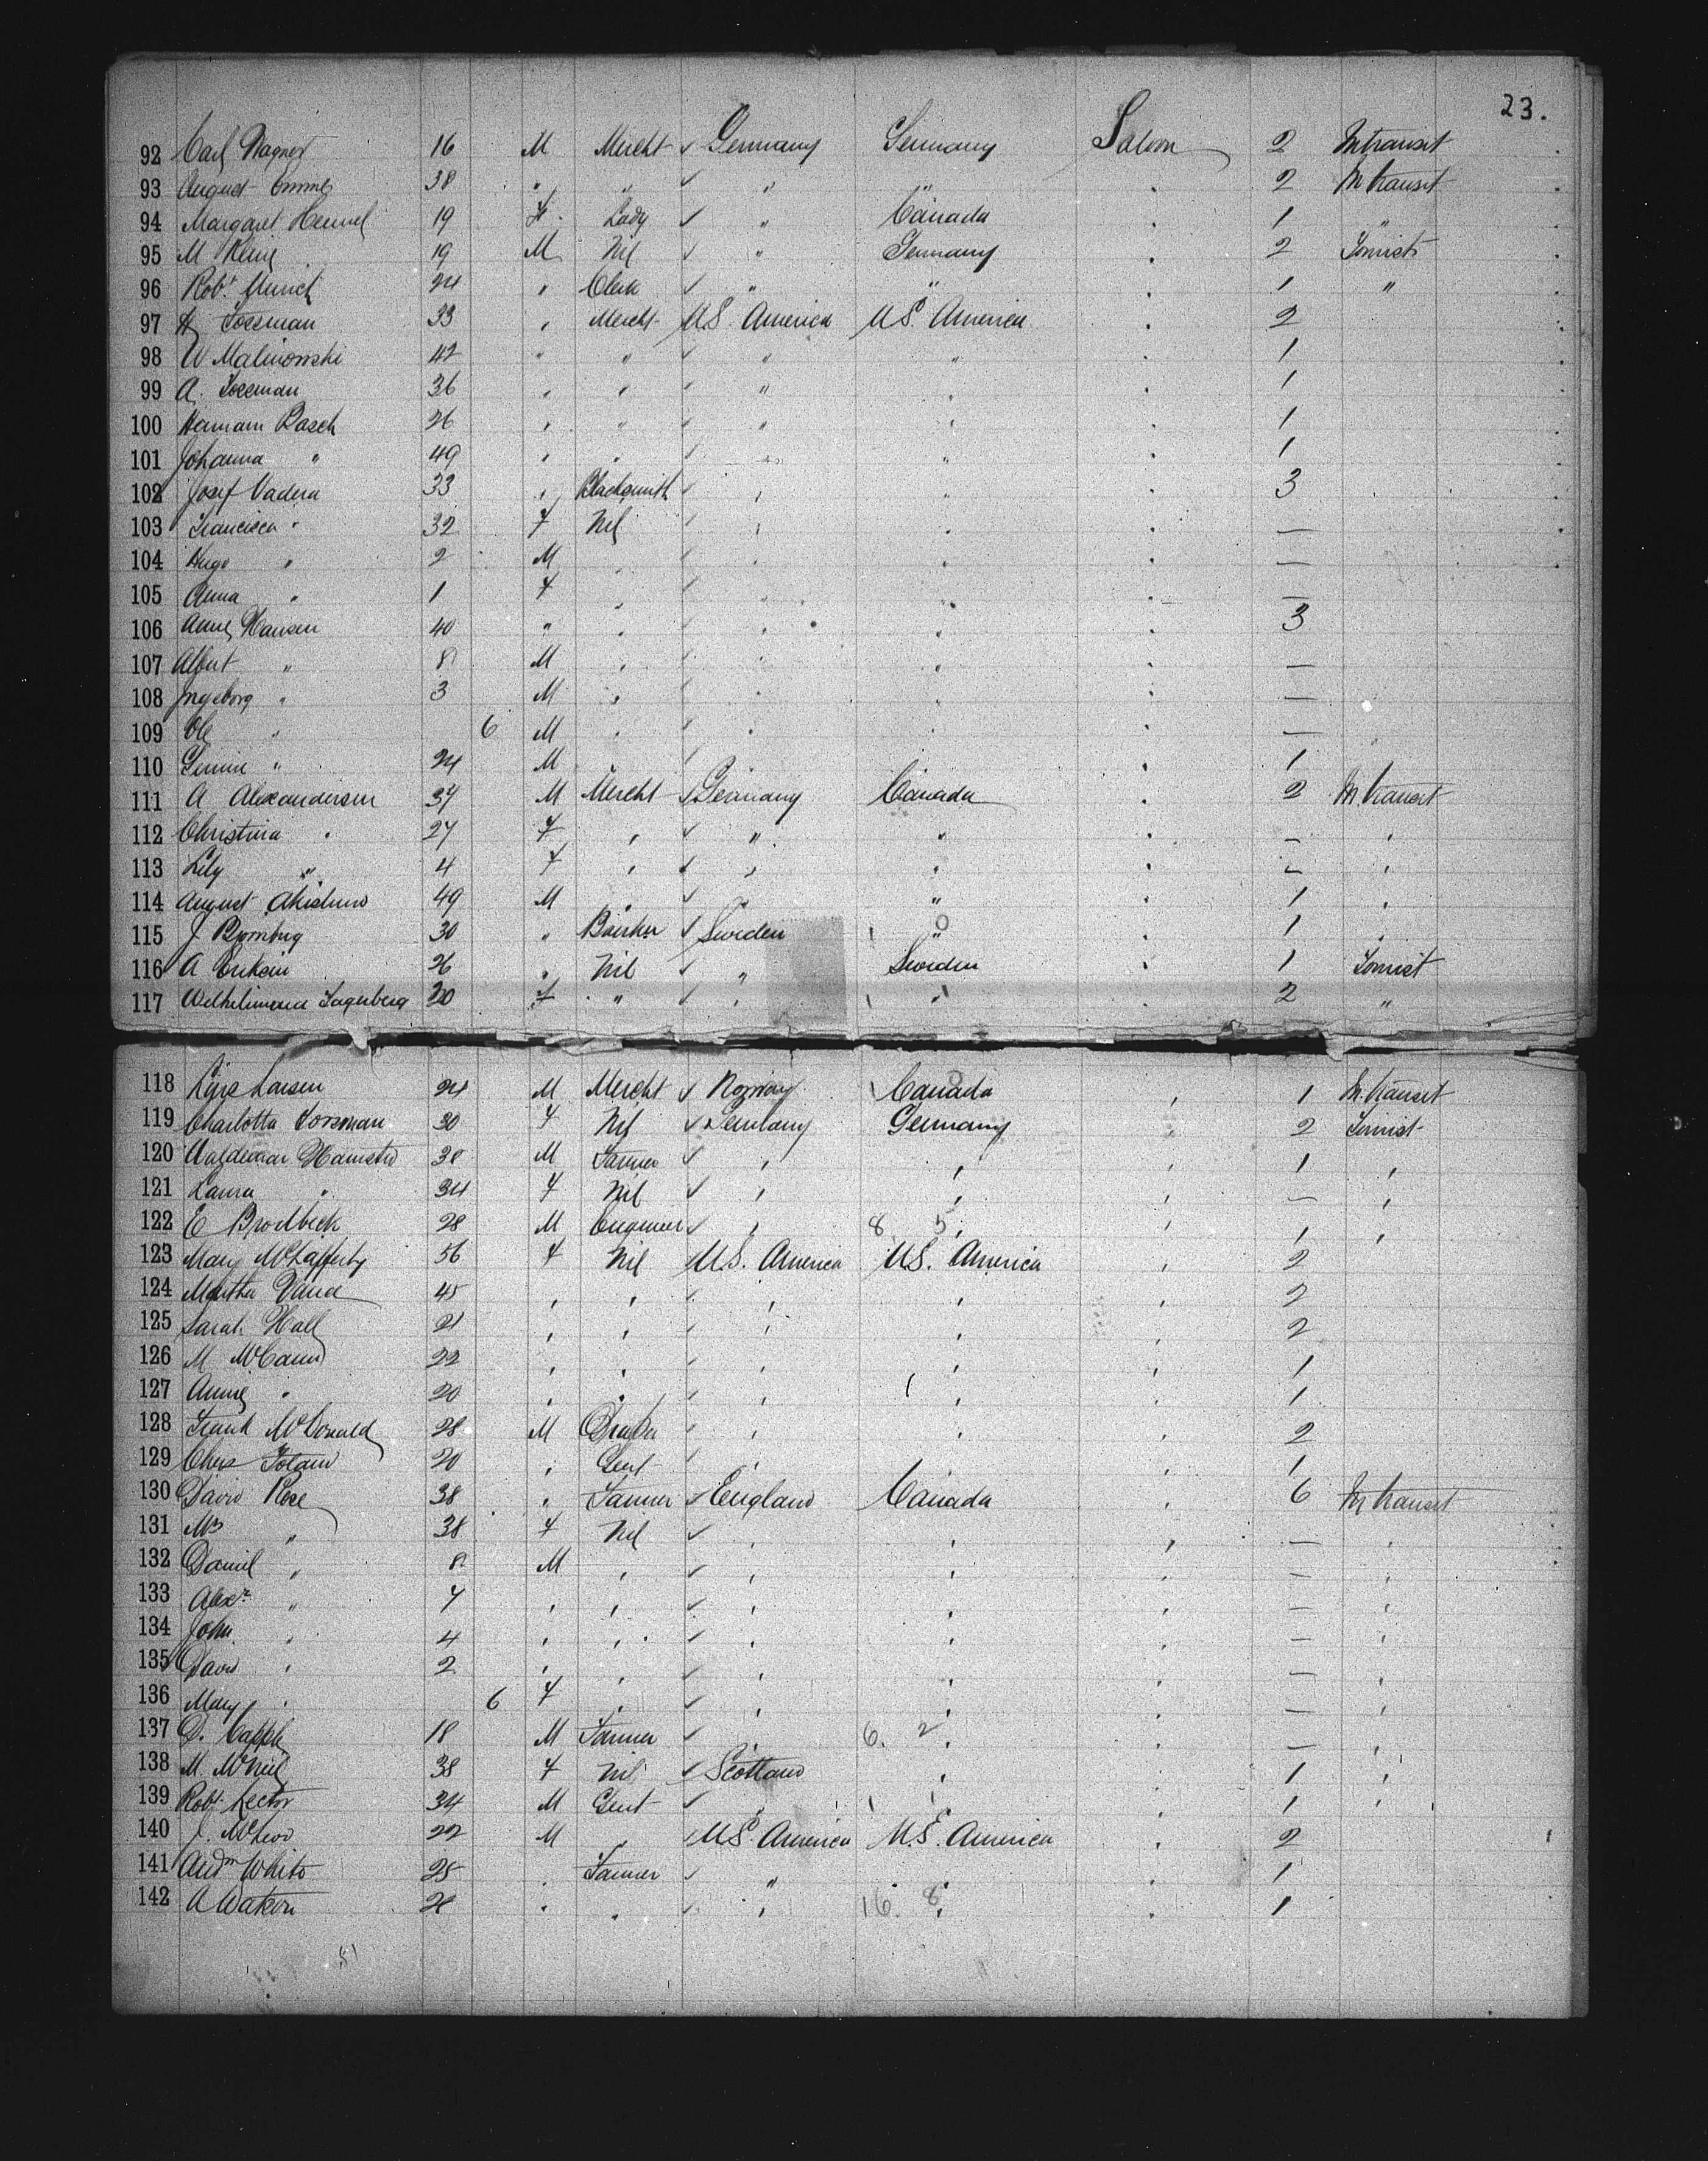 23.
92 Carl Wagner 16 M Mercht ✓ Germany Germany Saloon 2 In transit
93 August 38 " " ✓ " " " 2 In transit
94 Margaret 19 F Lady ✓ " Canada " 1 "
95 M Klein 19 M Nil ✓ " Germany " 2 Tourist
96 Robt 24 " Clerk ✓ " " " 1 "
97 33 " Mercht U.S. America U.S. America " 2
98 W Malinowski 42 " " ✓ " " " 1
99 A. 36 " " ✓ " " " 1
100 Hermann Rasch 26 " " ✓ " " " 1
101 Johanna " 49 " " ✓ " " " 1
102 Josef Vadera 33 " Blacksmith ✓ " " " 3
103 Francisca " 32 F Nil ✓ " " " —
104 Hugo " 2 M " ✓ " " " —
105 Anna " 1 F " ✓ " " " —
106 Anne Hansen 40 " " ✓ " " " 3
107 Albert " 8 M " ✓ " " " —
108 Ingeborg " 3 M " ✓ " " " —
109 Ole " 6 M " ✓ " " " —
110 " 24 M " ✓ " " " 1
111 A Alexandersen 37 M Mercht ✓ Germany Canada " 2 In transit
112 Christina " 27 F " ✓ " " " — "
113 Lily " 4 F " ✓ " " " — "
114 August 49 M " ✓ " " " 1 "
115 J 30 " ✓ Sweden " " 1 "
116 A 26 " Nil ✓ " Sweden " 1 Tourist
117 20 F " ✓ " " " 2 "
118 Lars Larsen 24 M Mercht ✓ Norway Canada " 1 In transit
119 Charlotta 30 F Nil ✓ Germany Germany " 2 Tourist
120 38 M Farmer ✓ " " " 1 "
121 Laura " 34 F Nil ✓ " " " — "
122 E Brodbeck 28 M Engineer ✓ " 8 5 " " 1 "
123 Mary McLafferty 56 F Nil U.S. America U.S. America " 2
124 Martha 45 " " ✓ " " " 2
125 Sarah Hall 21 " " ✓ " " " 2
126 M McCann 22 " " ✓ " " " 1
127 Annie " 20 " " ✓ " " " 1
128 Frank McDonald 28 M ✓ " " " 2
129 20 " Gent ✓ " " " 1
130 David Rose 38 " Farmer ✓ England Canada " 6 In transit
131 Mrs " 38 F Nil ✓ " " " — "
132 Daniel " 8 M " ✓ " " " — "
133 Alexr " 7 " " ✓ " " " — "
134 John " 4 " " ✓ " " " — "
135 David " 2 " " ✓ " " " — "
136 Mary " 6 F " ✓ " " " — "
137 D. 18 M Farmer ✓ " 6. 2 " " — "
138 M. McNeil 38 F Nil ✓ Scotland " " 1 "
139 Robt. Lector 34 M Gent ✓ " " " 1 "
140 J. McLeod 22 M " ✓ U.S. America U.S. America " 2
141 Andw White 25 " Farmer ✓ " " " 1
142 A Watson 28 " " ✓ " 16. 8 " " 1
51